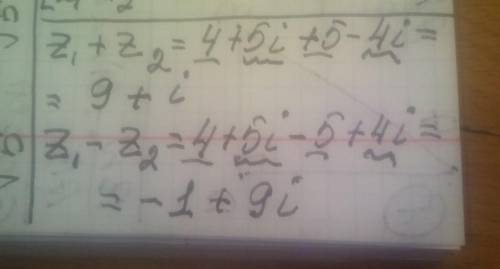 z₁ + z₂ = 4 + 5i + 5 - 4i =
= 9 + i
z₁ - z₂ = 4 + 5i - 5 + 4i =
= -1 + 9i